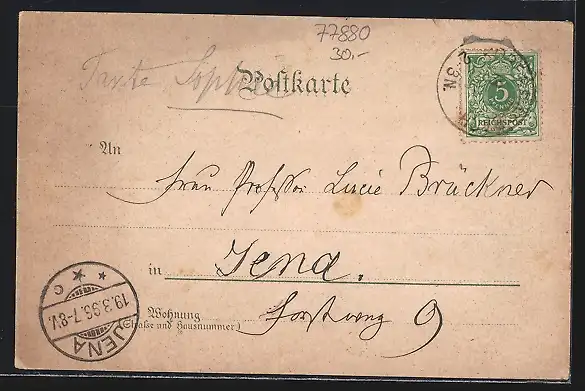 77880
30,-
Tante Sophie
Postkarte
5
REICHSPOST
An
Frau Professor Lucie Brückner
in Jena.
Wohnung
(Straße und Hausnummer)
Forstweg 9
JENA
19.3.96.7-8V.
C